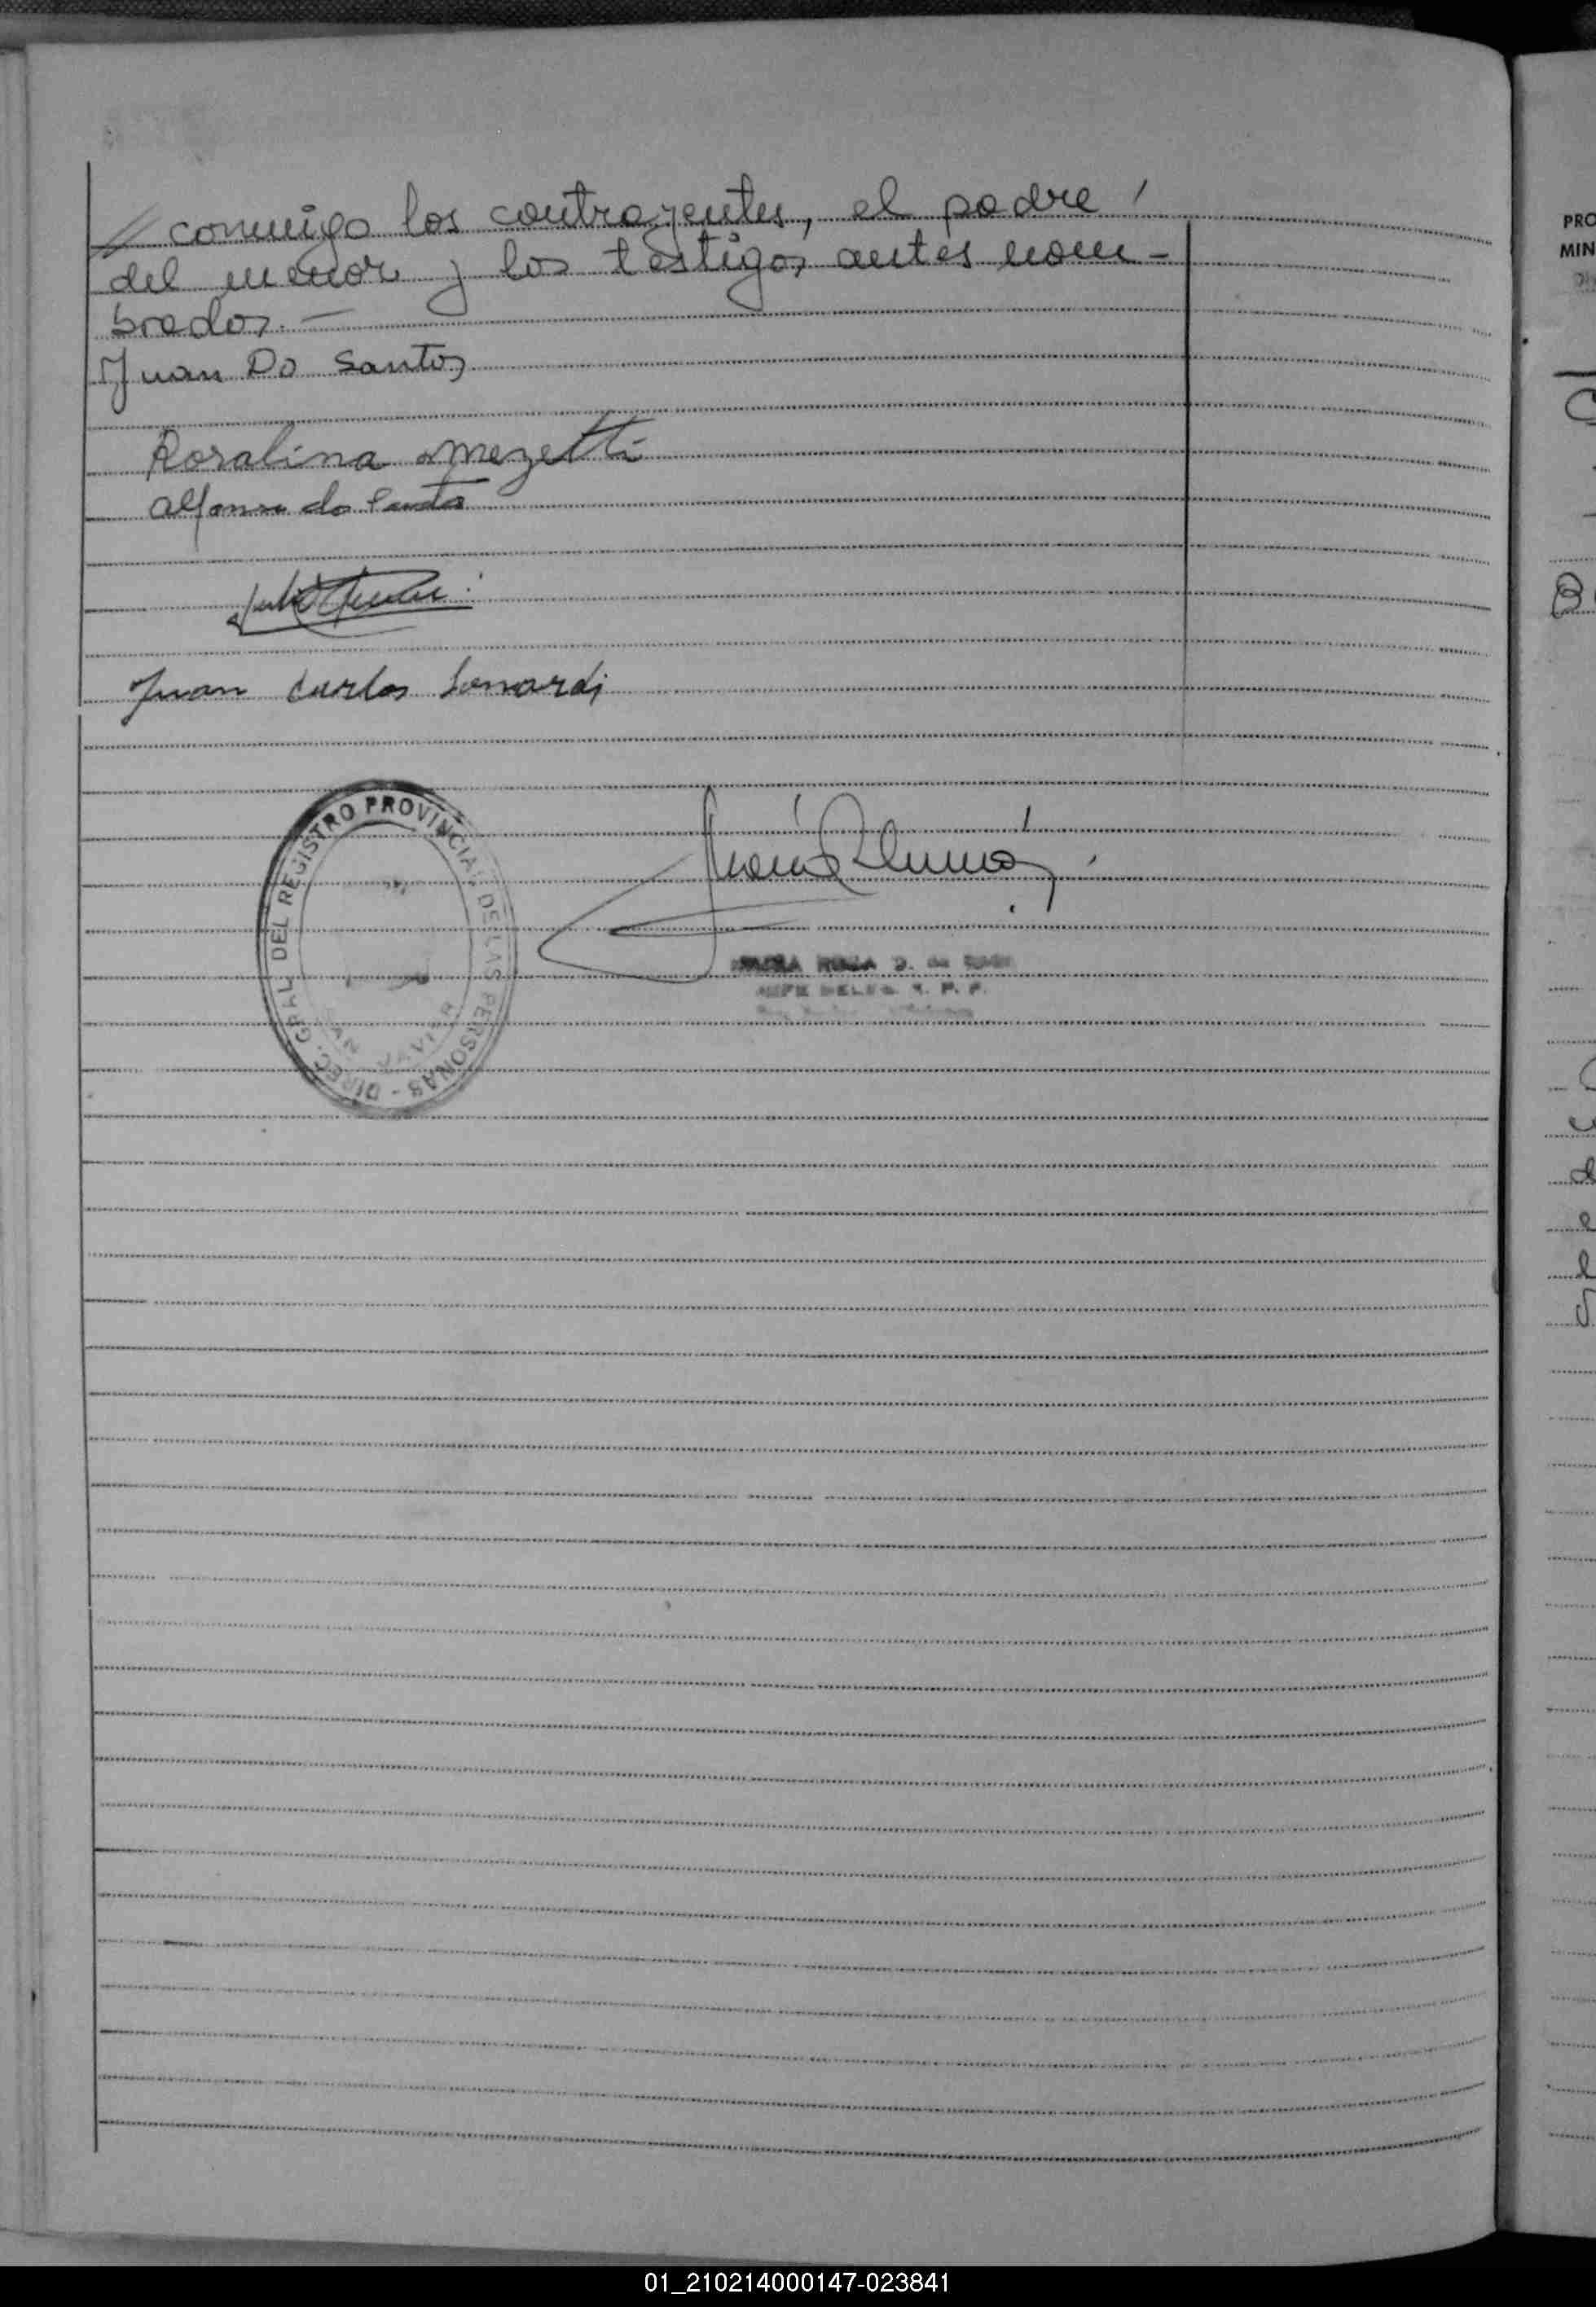 // conmigo los contrayentes, el padre
del menor y los testigos antes nom-
brados.-
Juan Do Santos
Rosalina Amezetti
Alfonso do Santo
Juan Carlos Lonardi
DIREC. GRAL. DEL REGISTRO PROVINCIAL DE LAS PERSONAS -
JEFE DELEG. R. P. P.
PRO
MIN
01_210214000147-023841